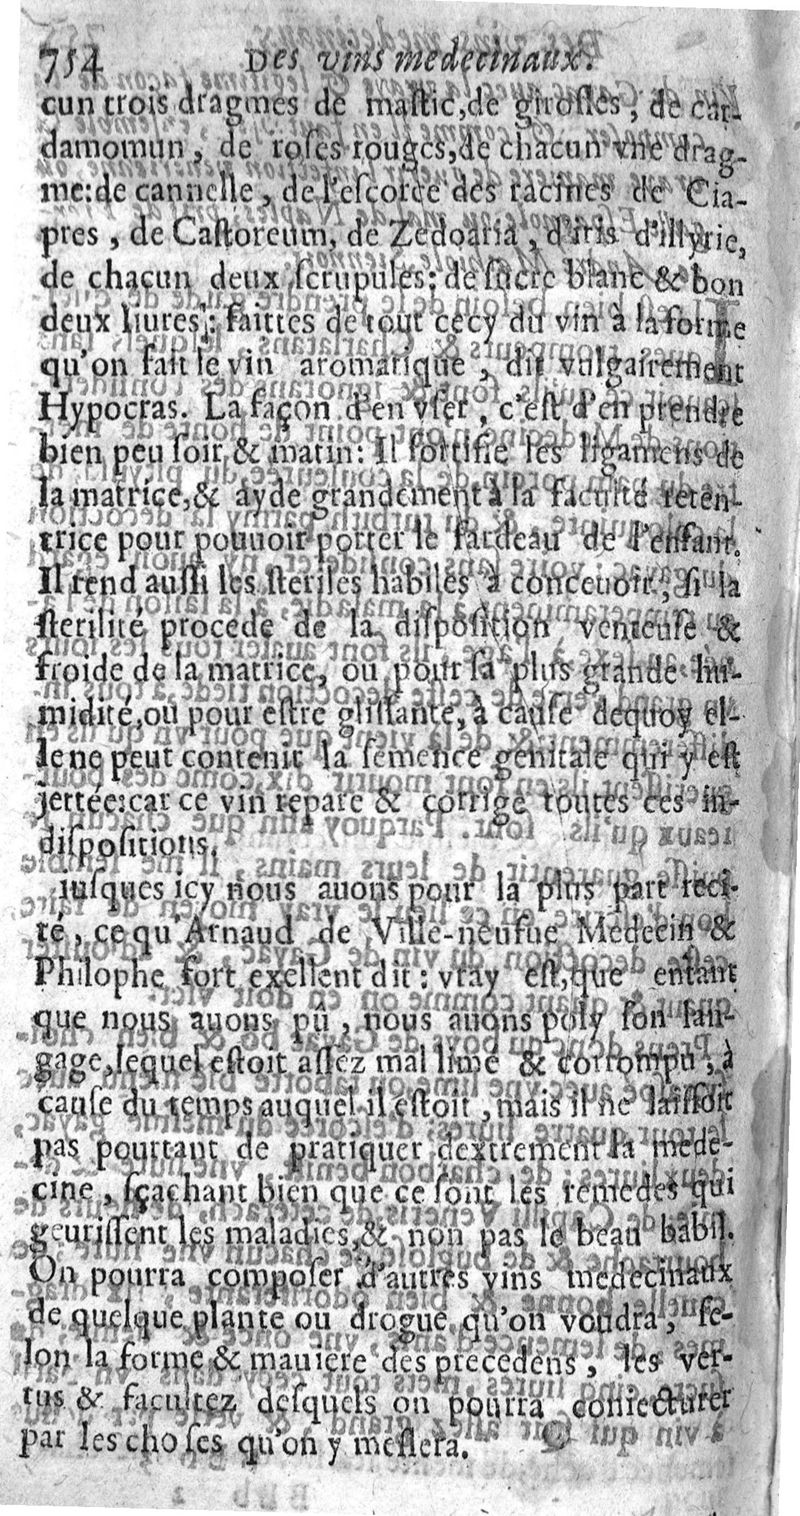 754 Des vins medecinaux.
cun trois dragmes de mastic, de girofles, de car-
damomun, de roses rouges, de chacun vne drag-
me: de cannelle, de l'escorce des racines de Cia-
pres, de Castoreum, de Zedoaria, d'iris d'illyrie,
de chacun deux scrupules: de sucre blanc & bon
deux liures: faittes de tout cecy du vin à la forme
qu'on fait le vin aromatique, dit vulgairement
Hypocras. La façon d'en vser, c'est d'en prendre
bien peu soir & matin: Il fortifie les ligamens de
la matrice, & ayde grandement à la faculté reten-
trice pour pouuoir porter le fardeau de l'enfant.
Il rend aussi les steriles habiles à conceuoir, si la
sterilité procede de la disposition venteuse &
froide de la matrice, ou pour sa plus grande hu-
midité, ou pour estre glissante, à cause dequoy el-
le ne peut contenir la semence genitale qui y est
jettée: car ce vin repare & corrige toutes ces in-
dispositions.
iusques icy nous auons pour la plus part reci-
té, ce qu'Arnaud de Ville-neufue Medecin &
Philophe fort exellent dit: vray est, que entant
que nous auons pû, nous auons poly son lan-
gage, lequel estoit assez mal limé & corrompu, à
cause du temps auquel il estoit, mais il ne laissoit
pas pourtant de pratiquer dextrement la mede-
cine, sçachant bien que ce sont les remedes qui
geurissent les maladies, & non pas le beau babil.
On pourra composer d'autres vins medecinaux
de quelque plante ou drogue qu'on voudra, se-
lon la forme & mauiere des precedens, les ver-
tus & facultez desquels on pourra coniecturer
par les choses qu'on y meslera.